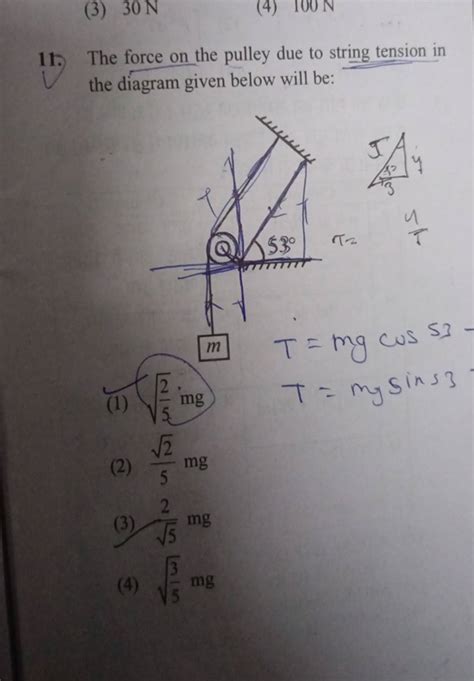 (3) 30 N (4) 100 N
11. The force on the pulley due to string tension in
the diagram given below will be:
5
4
3
53°
T=
4
m
T = mg cos 53 -
T = mg sin 53 -
(1) √(2/5) mg
(2) √2/5 mg
(3) 2/√5 mg
(4) √(3/5) mg